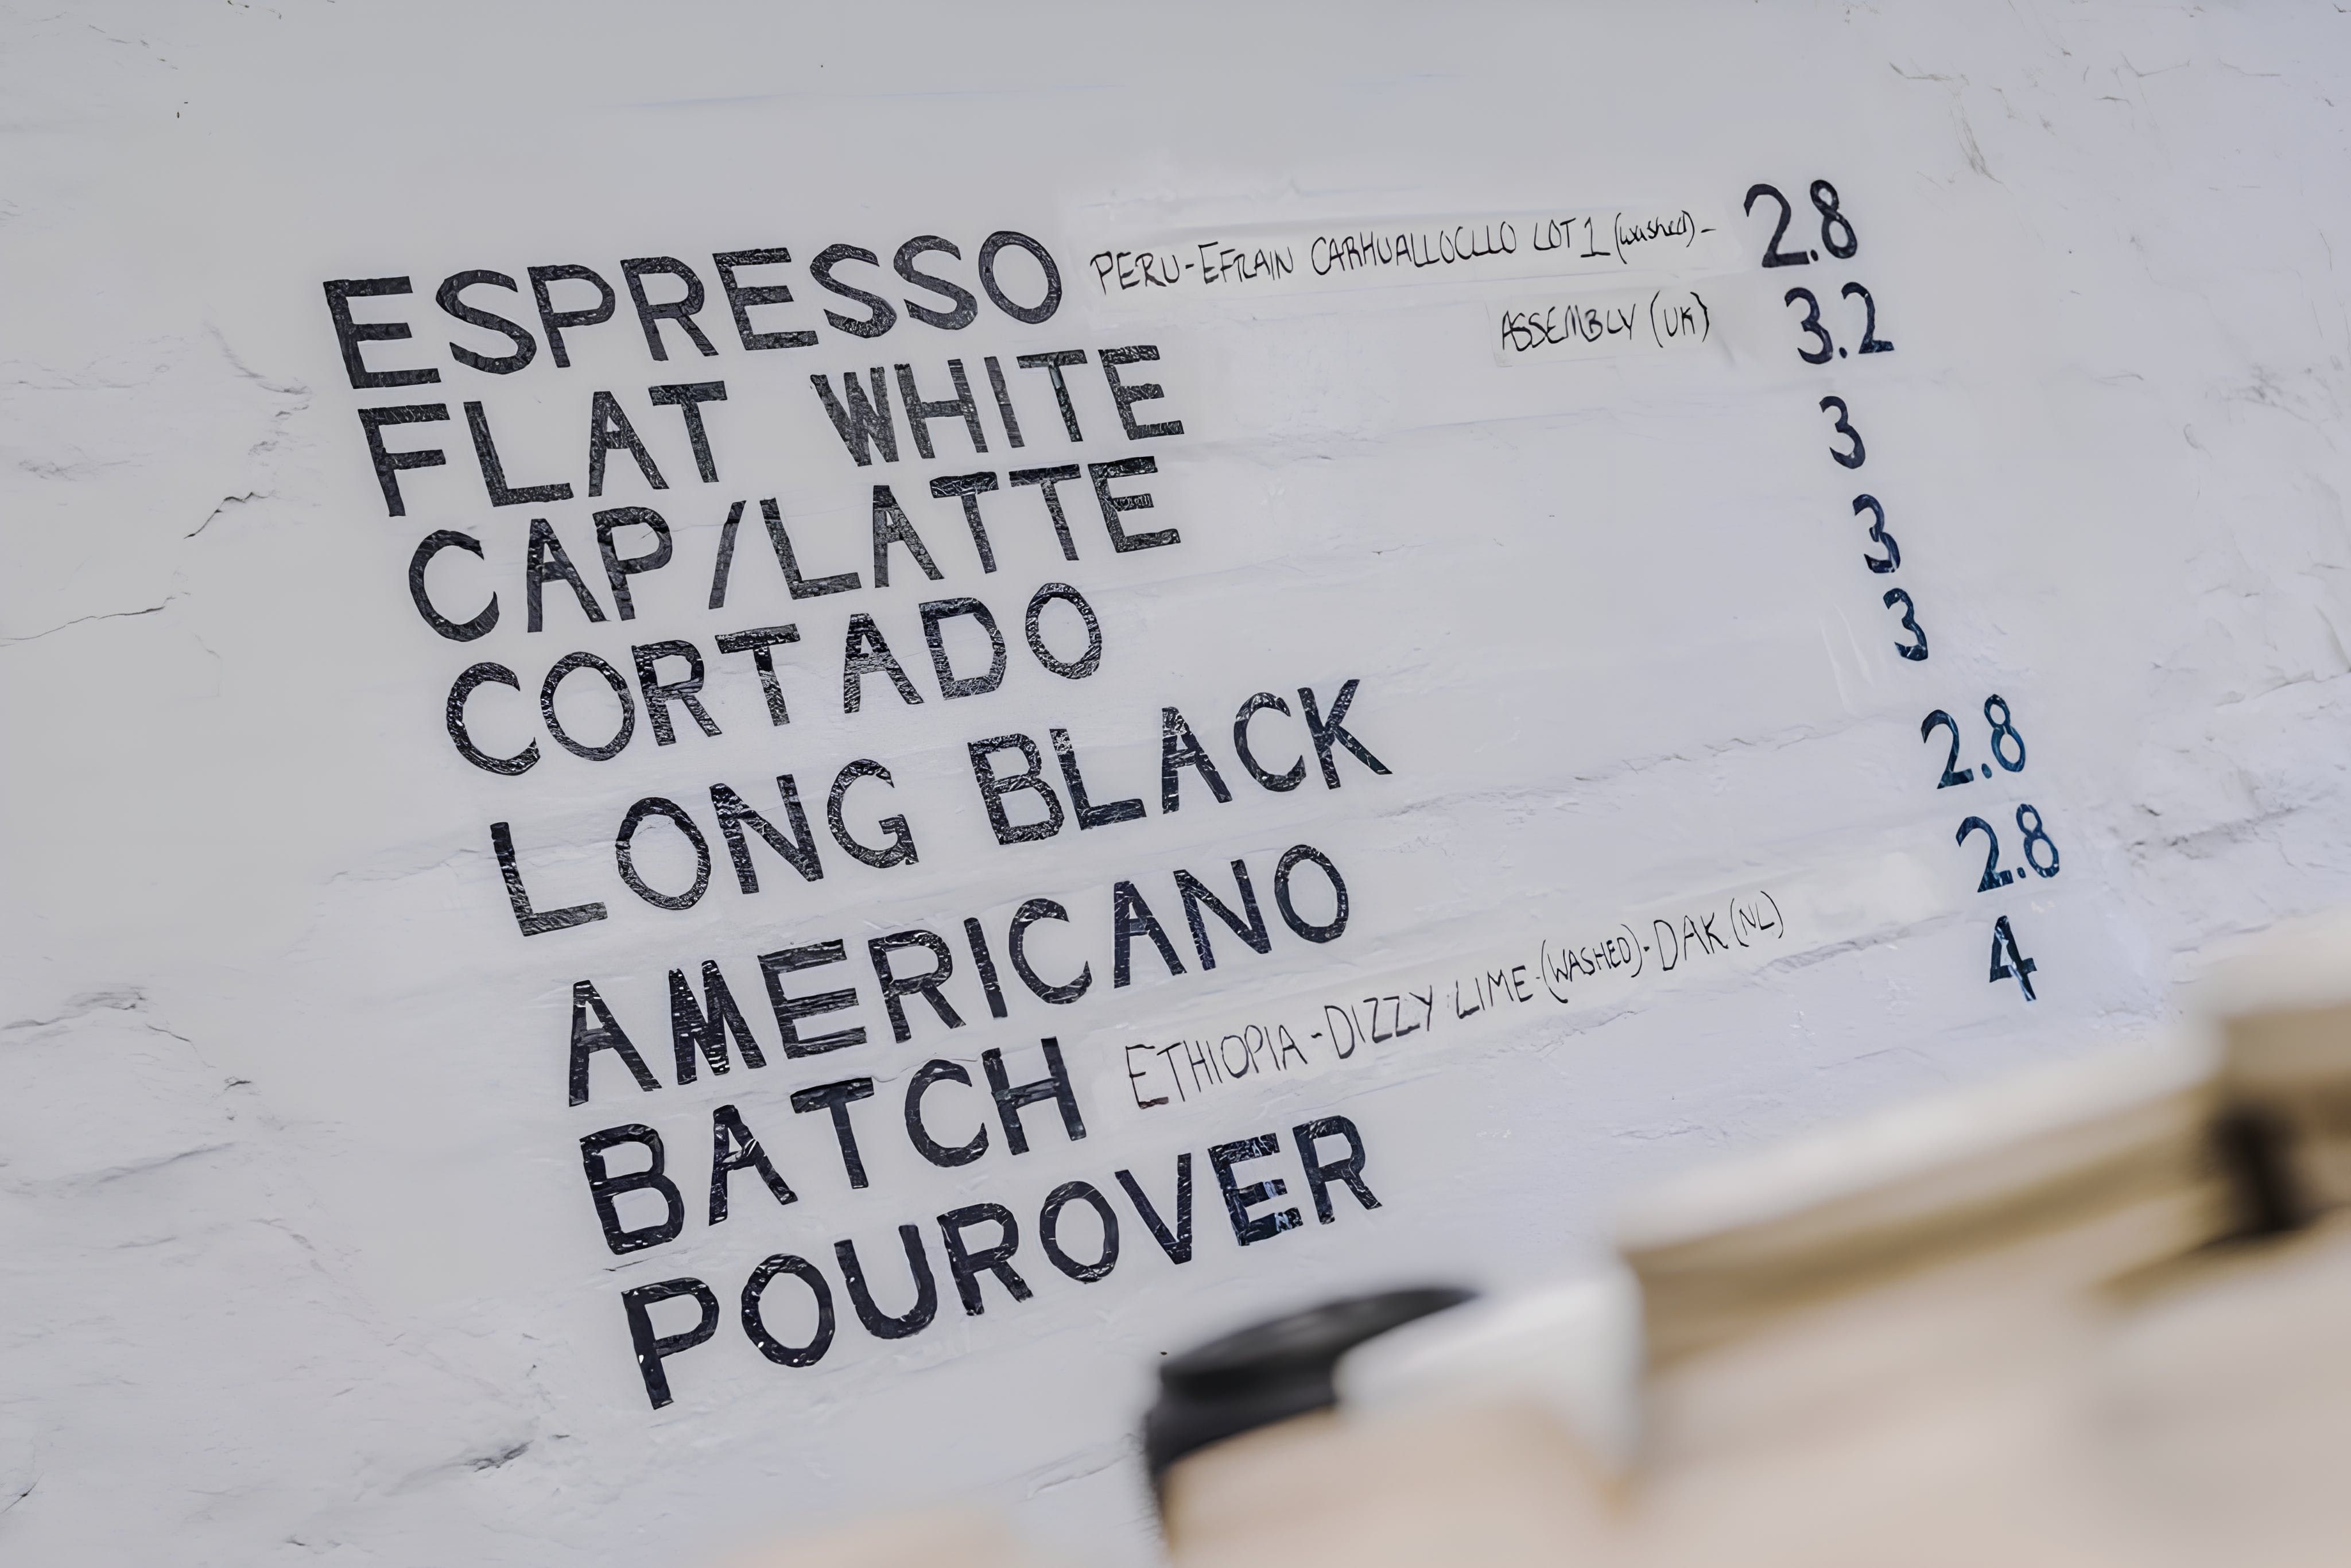 ESPRESSO PERU-EFRAIN CARHUALLOCLLO LOT 1 (washed)- 2.8
ASSEMBLY (UK)
FLAT WHITE 3.2
CAP/LATTE 3
CORTADO 3
LONG BLACK 3
AMERICANO 2.8
BATCH ETHIOPIA-DIZZY LIME-(WASHED)-DAK (NL) 2.8
POUROVER 4